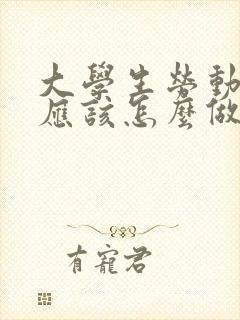 大學生勞動
應該怎麼做
有寵君